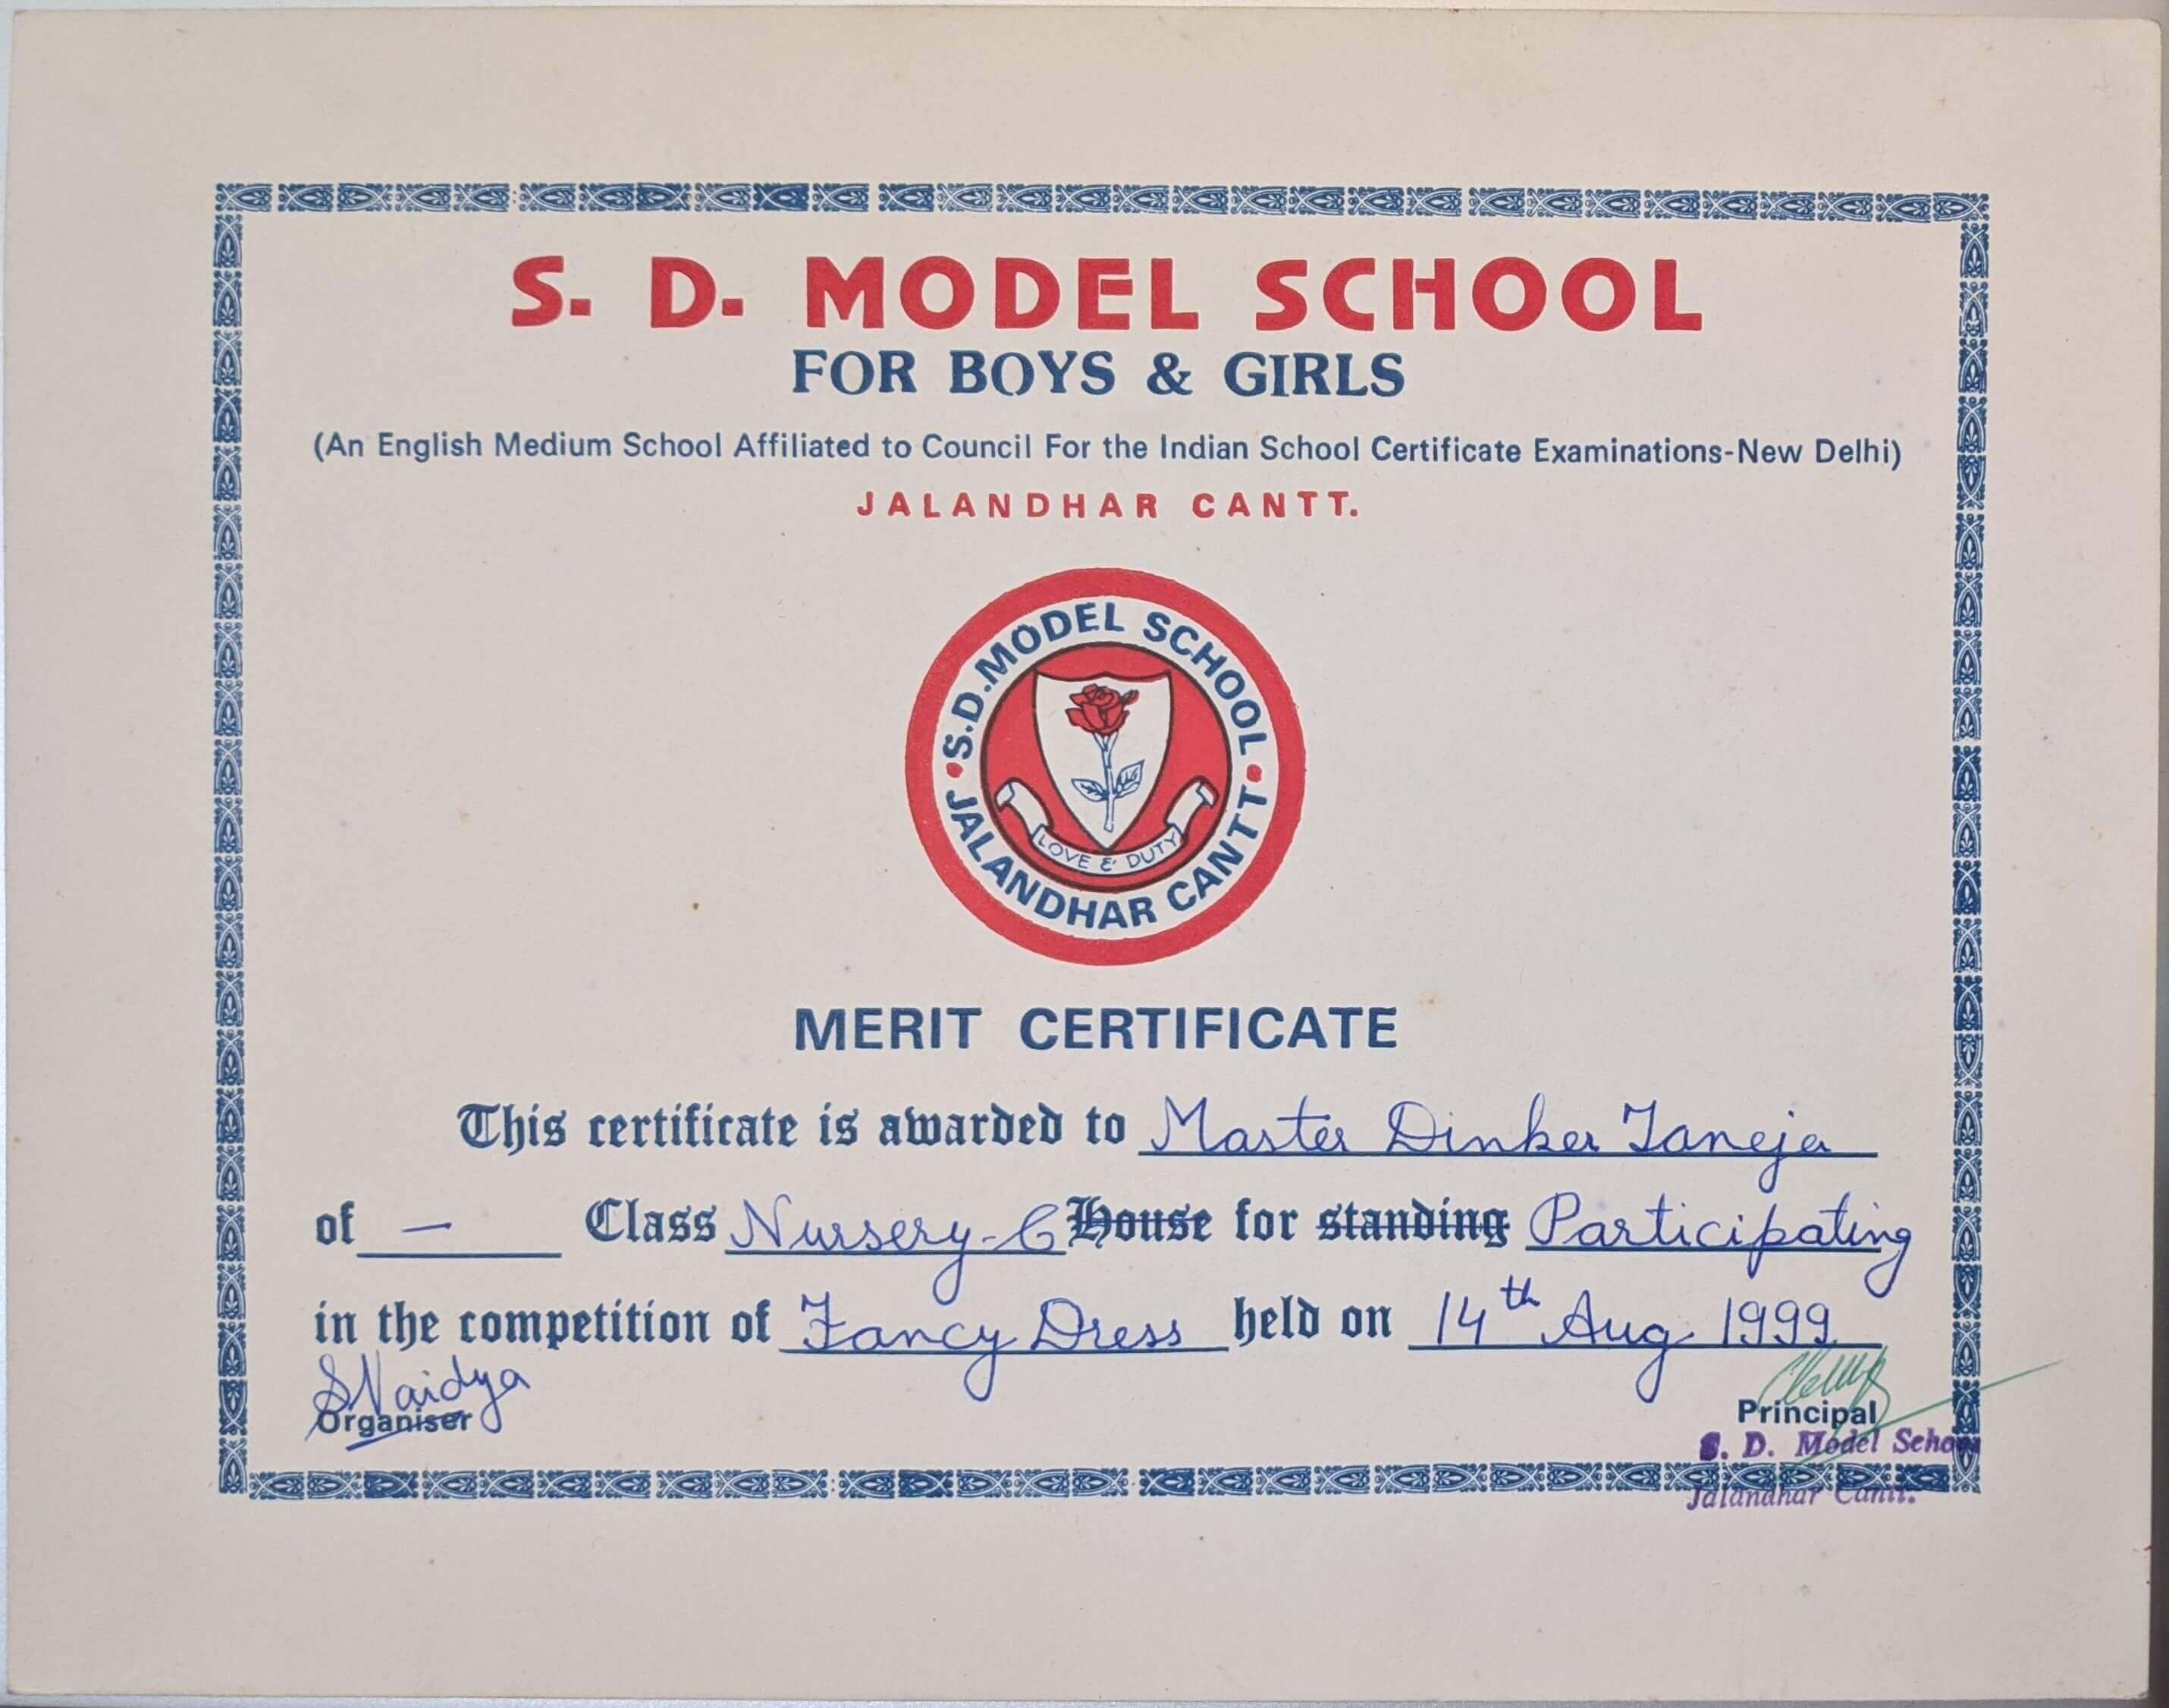 S. D. MODEL SCHOOL
FOR BOYS & GIRLS
(An English Medium School Affiliated to Council For the Indian School Certificate Examinations-New Delhi)
JALANDHAR CANTT.
S.D.MODEL SCHOOL
LOVE & DUTY
JALANDHAR CANTT
MERIT CERTIFICATE
This certificate is awarded to Master Dinker Taneja
of — Class Nursery-C House for standing Participating
in the competition of Fancy Dress held on 14th Aug. 1999
SVaidya
Organiser
Principal
S. D. Model School
Jalandhar Cantt.